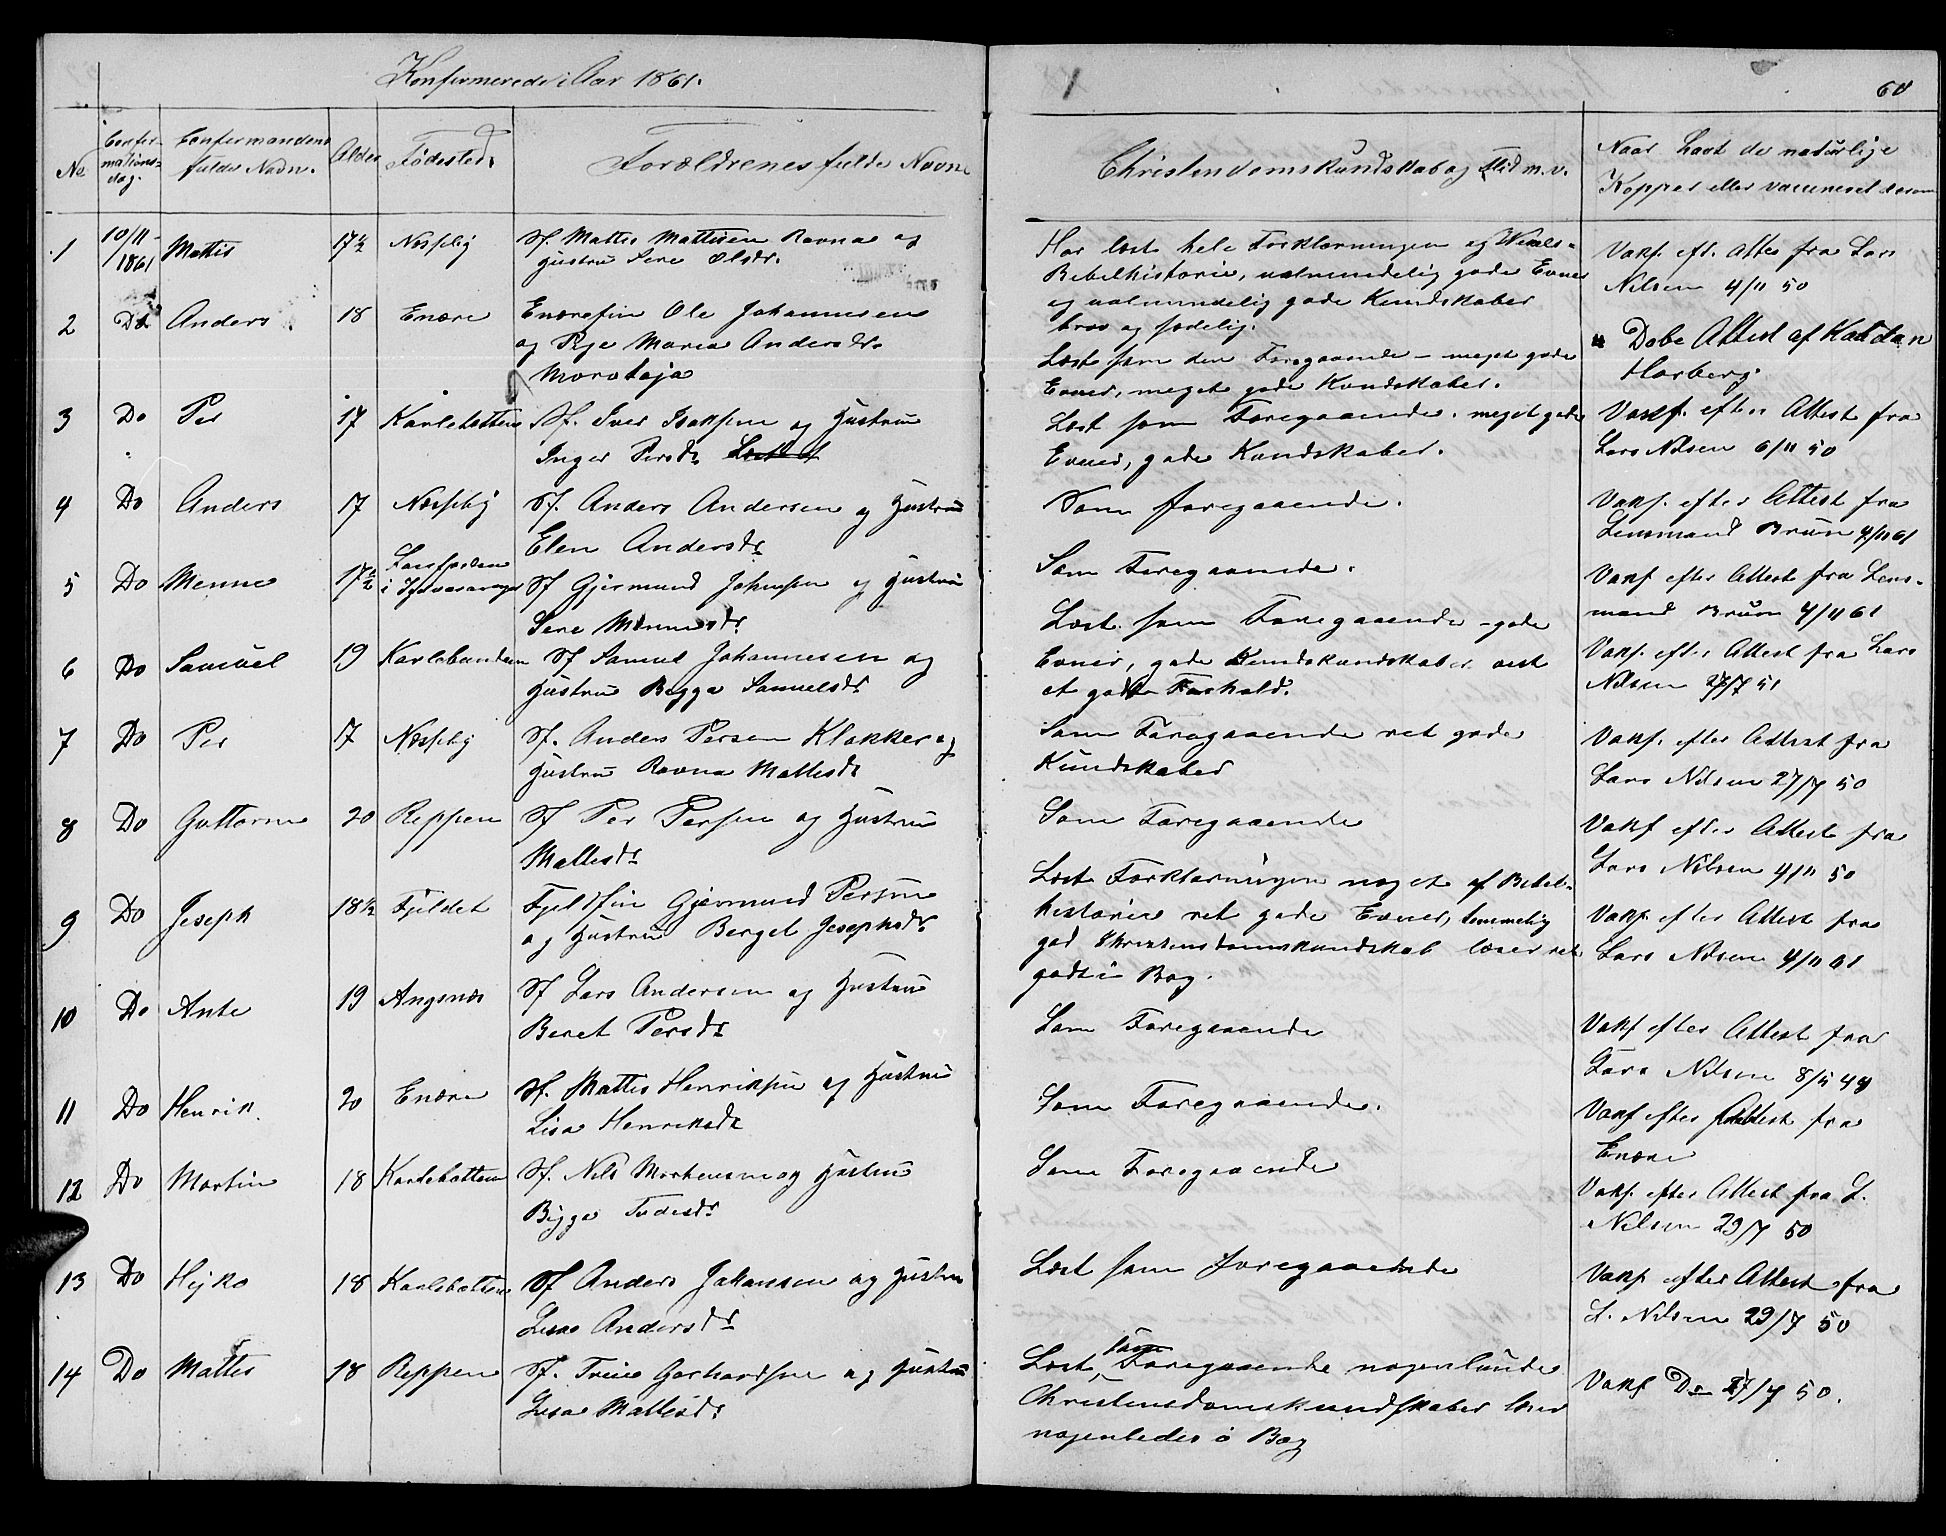 Konfirmerede i Aar 1861.
60
No
Confir-
mations-
dag.
Confirmandens
fulde Navn.
Alder
Födested
Forældrenes fulde Navne
Christendomskundskab og Flid m. v.
Naar havt de naturlige
Kopper eller vaccineret
1 10/11 1861 Mattis 17½ Næsseby Sf. Mattis Mattisen Ravna og
Hustru Sere Olsdr.
Har læst hele Forklaringen og
Bibelhistorie, ualmindelig gode Evner
og ualmindelig gode Kundskaber
brav og sædelig.
Vakf. eft. Attes fra Lars
Nilsen 4/11 50
2 Do Anders 18 Enare Enarefin Ole Johannesen
og Maria Andersdr.
Morotaja
Læst som den Foregaaende - meget gode
Evner, meget gode Kundskaber.
Döbe Attest af
3 Do Per 17 Karlebotten Sf. Iver Isaksen og Hustru
Inger Persdr.
Læst som Foregaaende. meget gode
Evner, gode Kundskaber.
Vakf. efter Attest fra
Lars Nilsen 6/11 50
4 Do Anders 17 Næsseby Sf. Anders Andersen og Hustru
Elen Andersdr
Som foregaaende.
Vakf. efter Attest fra
Lensmand Brun 4/11 61
5 Do Menne 17½
Sf Gjermund Johnsen og Hustru
Sere Mennesdr
Som Foregaaende.
Vakf efter Attest fra Lens-
mand Brun 4/11 61
6 Do Samuel 19 Karlebunden Sf Samuel Johannesen og
Hustru Bigga Samuelsdr
Læst som Foregaaende - gode
Evner, gode
et godt Forhold.
Vakf. efter Attest fra Lars
Nilsen 27/7 51
7 Do Per 17 Næsseby Sf. Anders Persen Klokker og
Hustru Ravna Mattesdr
Som Foregaaende ret gode
Kundskaber
Vakf. efter Attest fra
Lars Nilsen 27/7 50
8 Do Guttorm 20 Reppen Sf Per Persen og Hustru
Mattesdr
Som Foregaaende
Vakf efter Attest fra
Lars Nilsen 4/11 50
9 Do Joseph 18½ Fjeldet Fjeldfin Gjermund Persen
og Hustru Berget Josephsdr
Læst Forklaringen noget af Bibel-
historien ret gode Evner, temmelig
god Christensdomskundskab læser ret
godt i Bog.
Vakf. efter Attest fra
Lars Nilsen 4/11 61
10 Do Ante 19 Angsnæs Sf Lars Andersen og Hustru
Beret Persdr
Som Foregaaende
Vakf efter Attest fra
Lars Nilsen
11 Do Henrik. 20 Enare Sf. Mattis Henriksen og Hustru
Lisa Henriksdr
Som Foregaaende.
Vakf efter Attest fra
Enare
12 Do Martin 18 Karlebotten Sf. Nils Mortensen og Hustru
Bigga
Som Foregaaende
Vakf. efter Attest fra L.
Nilsen 29/7 50
13 Do Hejka 18 Karlebotten Sf Anders Johansen og Hustru
Lisa Andersdr
Læst som foregaaende
Vakf efter Attest fra
L. Nilsen 29/7 50
14 Do Mattis 18 Reppen Sf. Gerhardsen og Hustru
Lisa Mattisdr
Læst som Foregaaende nogenlunde
Christensdomskundskaber læser
nogenledes i Bog
Vakf Do 27/7 50.